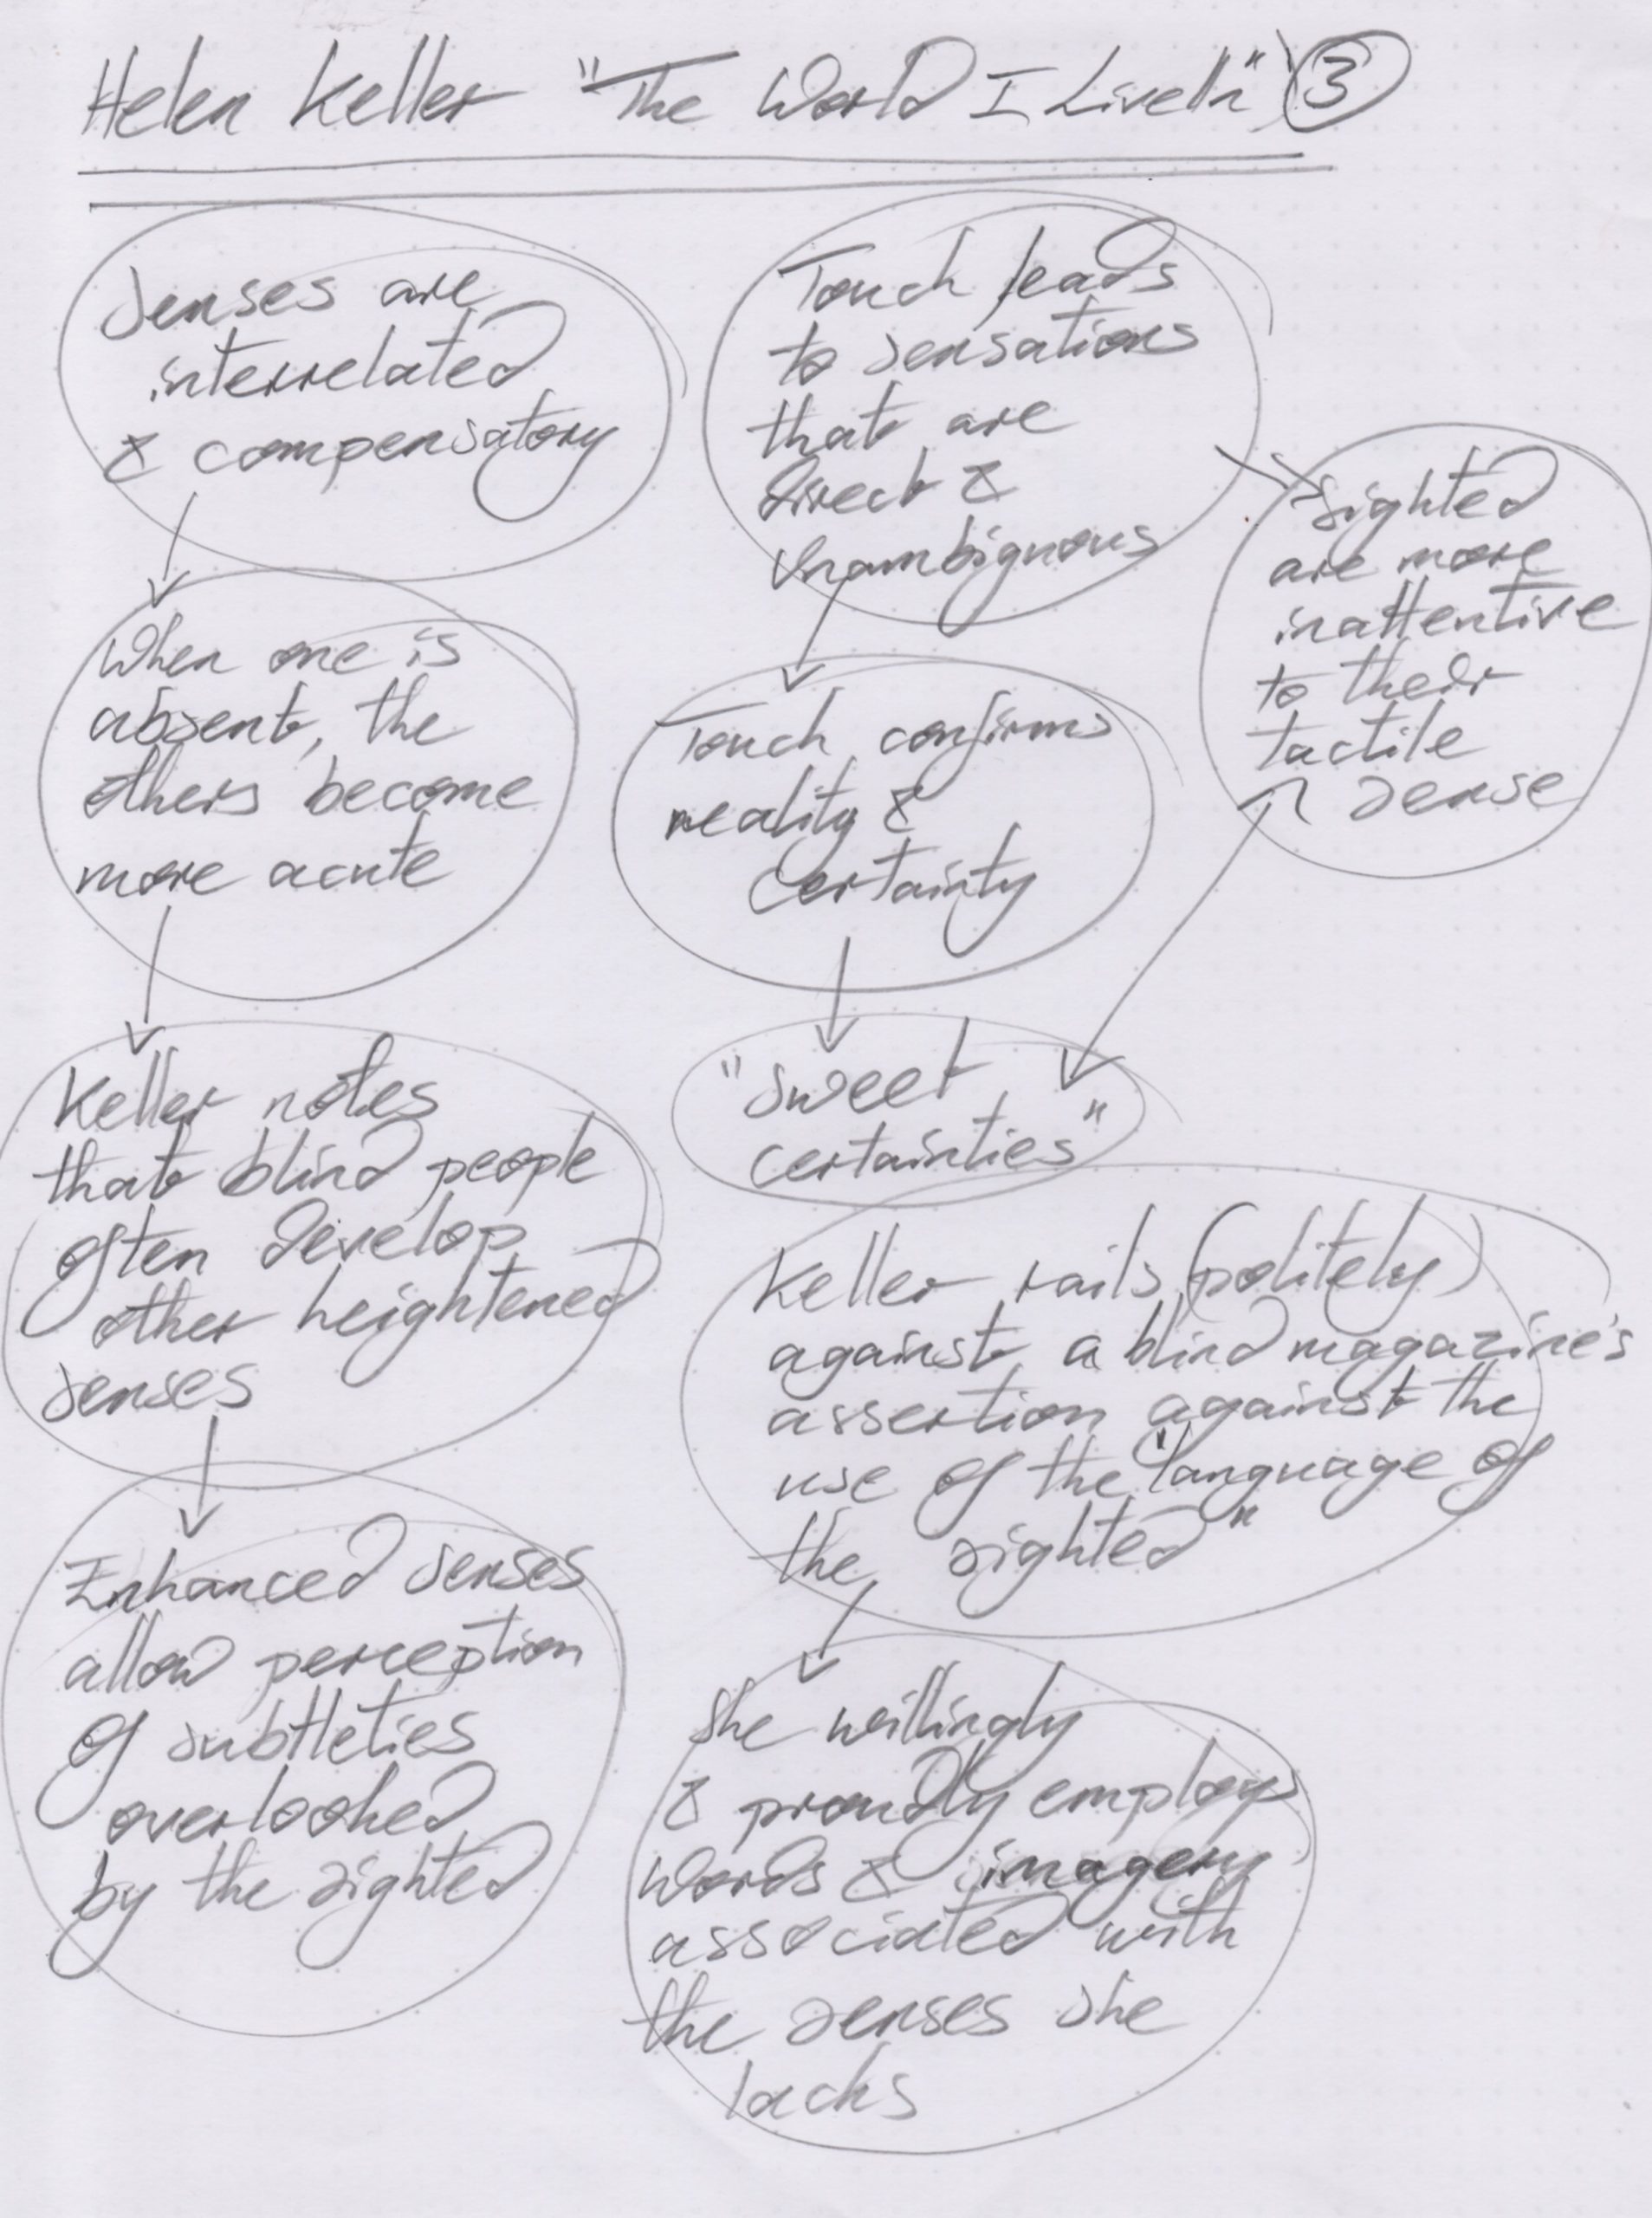 Helen Keller "The World I Live In" ③
Senses are
interrelated
& compensatory
When one is
absent, the
others become
more acute
Keller notes
that blind people
often develop
other heightened
senses
Enhanced senses
allow perception
of subtleties
overlooked
by the sighted
Touch leads
to sensations
that are
direct &
unambiguous
Touch confirms
reality &
certainty
Sighted
are more
inattentive
to their
tactile
sense
"Sweet
certainties"
Keller rails (politely)
against a blind magazine's
assertion against the
use of the "language of
the sighted"
She willingly
& proudly employs
words & imagery
associated with
the senses she
lacks